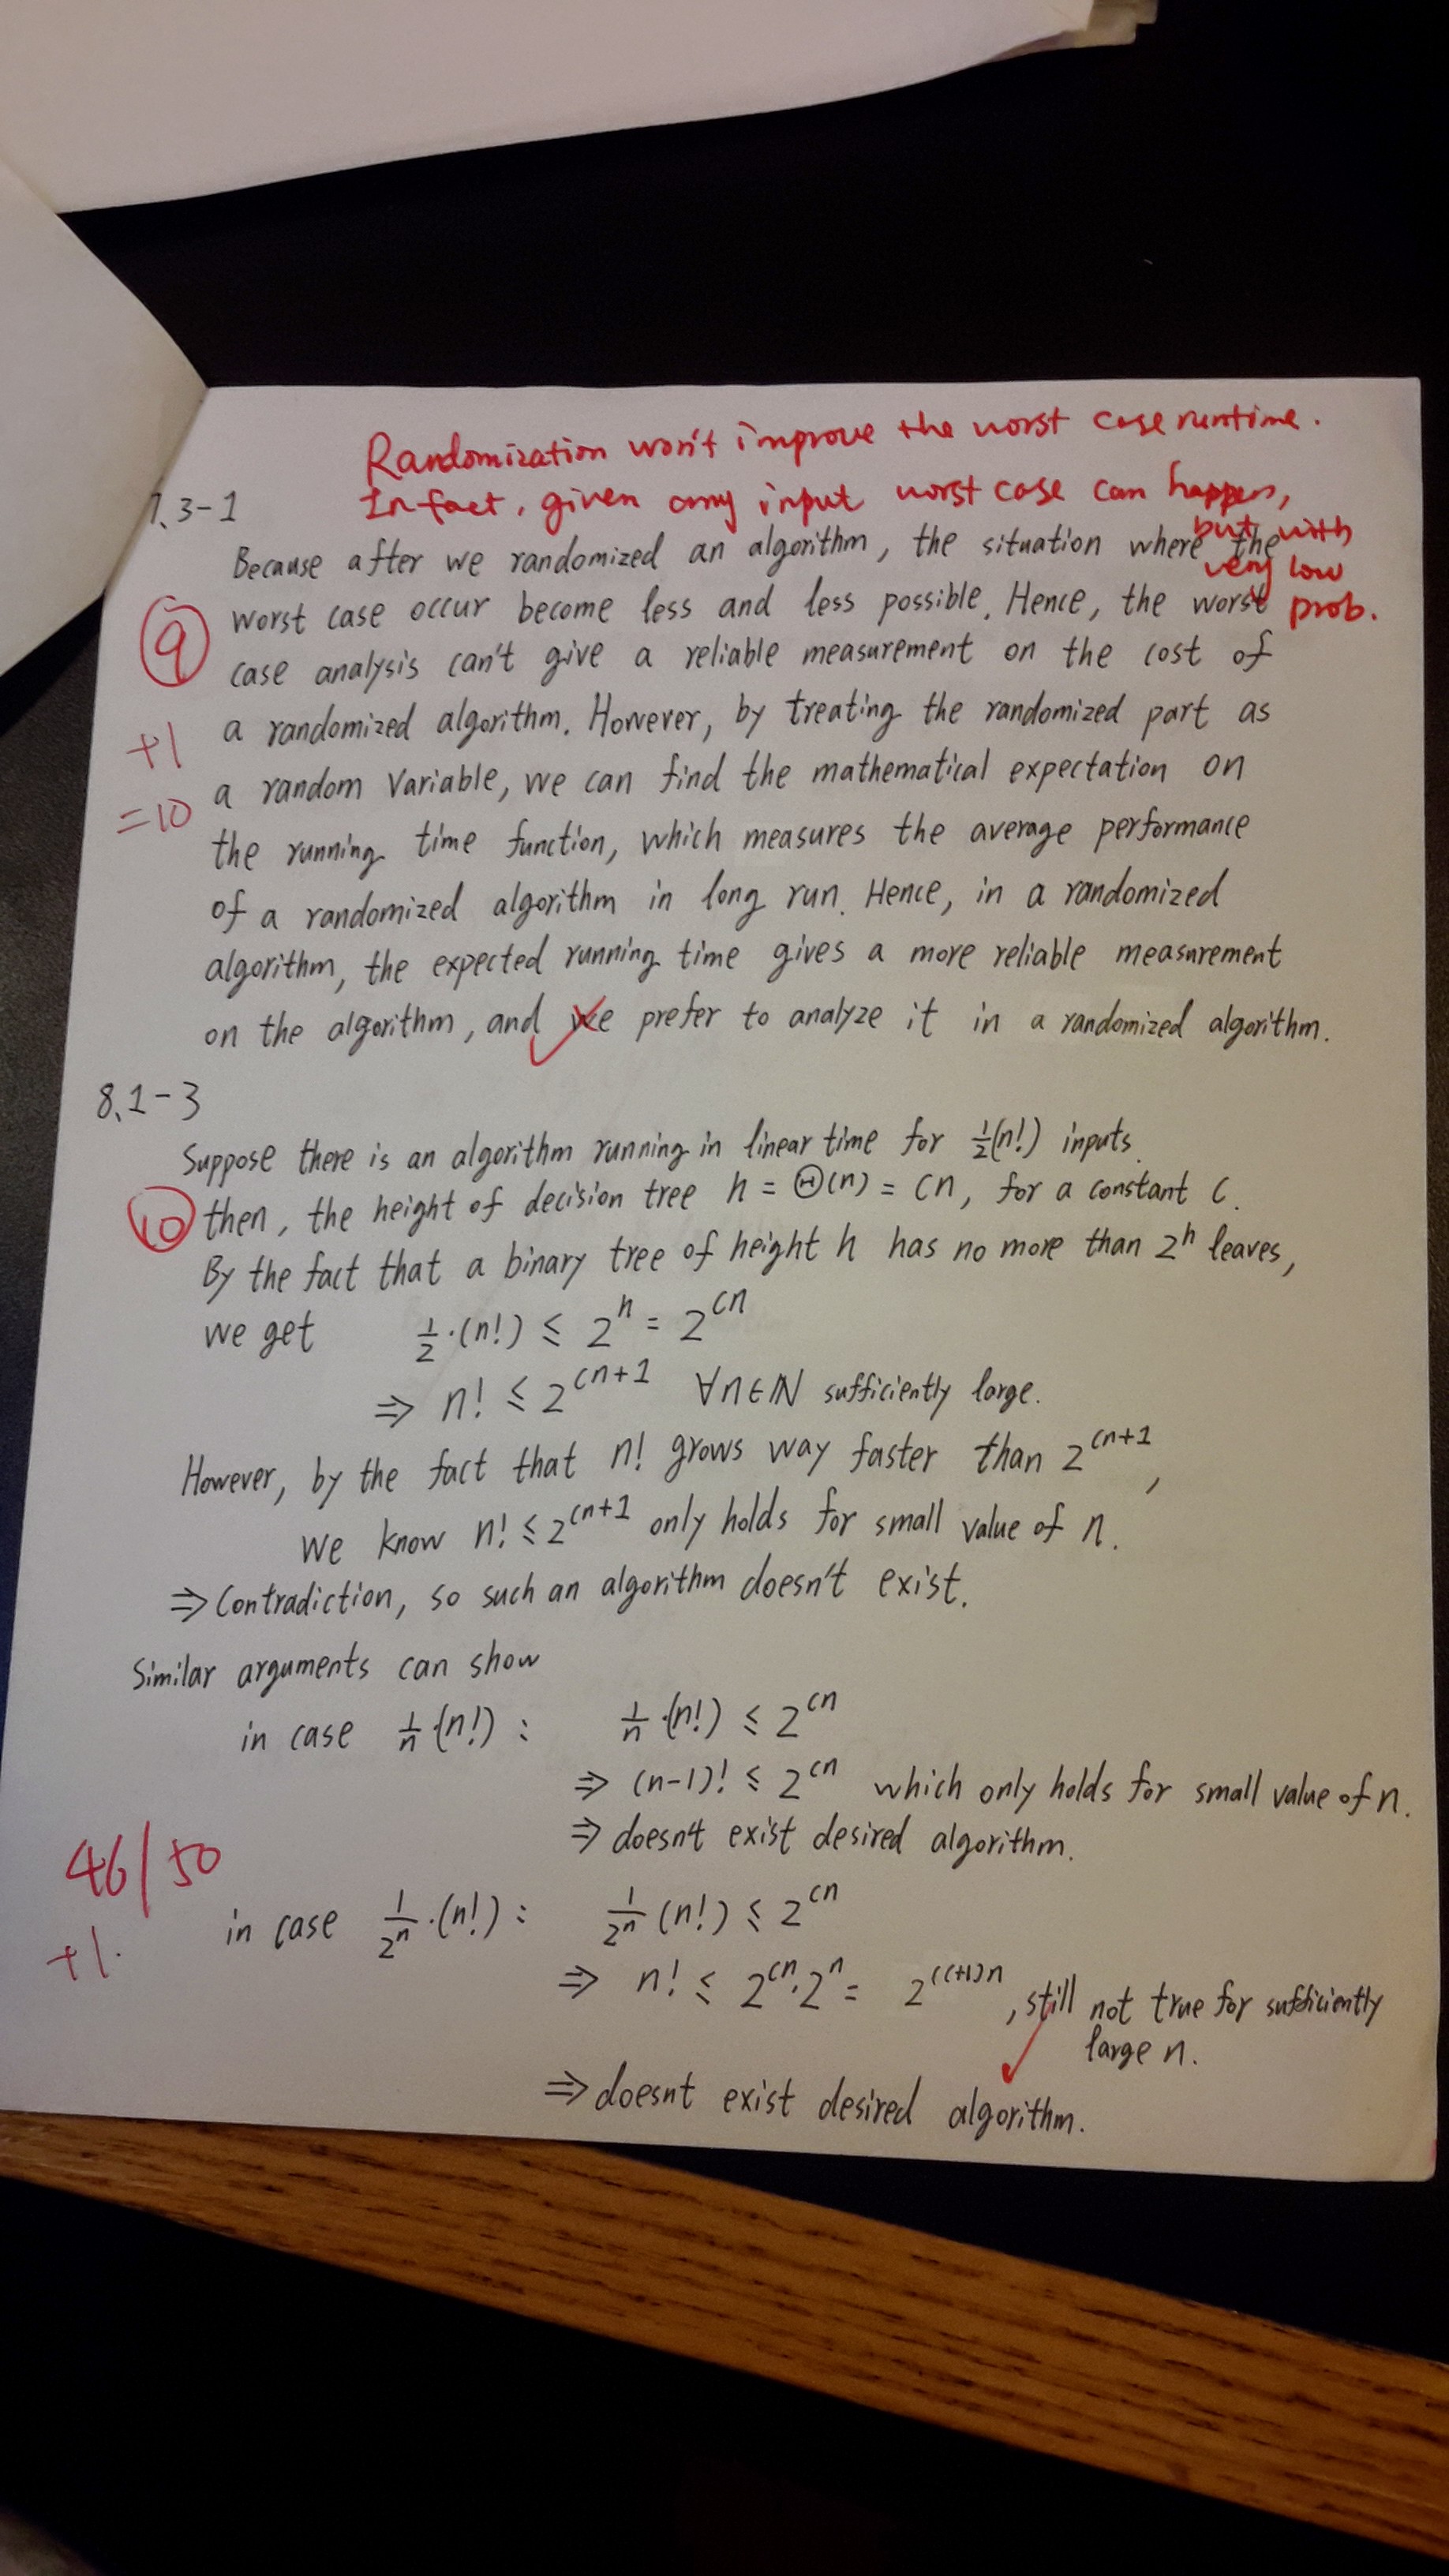 Randomization won't improve the worst case runtime.
In fact, given any input worst case can happen,
but with
very low
prob.
7.3-1
Because after we randomized an algorithm, the situation where the
worst case occur become less and less possible. Hence, the worst
9
case analysis can't give a reliable measurement on the cost of
a randomized algorithm. However, by treating the randomized part as
+1
a random variable, we can find the mathematical expectation on
=10
the running time function, which measures the average performance
of a randomized algorithm in long run. Hence, in a randomized
algorithm, the expected running time gives a more reliable measurement
on the algorithm, and we prefer to analyze it in a randomized algorithm.
8.1-3
Suppose there is an algorithm running in linear time for ½(n!) inputs.
10
then, the height of decision tree h = Θ(n) = cn, for a constant c.
By the fact that a binary tree of height h has no more than 2^h leaves,
we get ½·(n!) ≤ 2^h = 2^{cn}
⇒ n! ≤ 2^{cn+1} ∀n∈ℕ sufficiently large.
However, by the fact that n! grows way faster than 2^{cn+1},
we know n! ≤ 2^{cn+1} only holds for small value of n.
⇒ Contradiction, so such an algorithm doesn't exist.
Similar arguments can show
in case 1/n·(n!): 1/n·(n!) ≤ 2^{cn}
⇒ (n-1)! ≤ 2^{cn} which only holds for small value of n.
⇒ doesn't exist desired algorithm.
46/50
in case 1/2^n·(n!): 1/2^n (n!) ≤ 2^{cn}
+1.
⇒ n! ≤ 2^{cn}·2^n = 2^{(c+1)n}, still not true for sufficiently
large n.
⇒ doesnt exist desired algorithm.